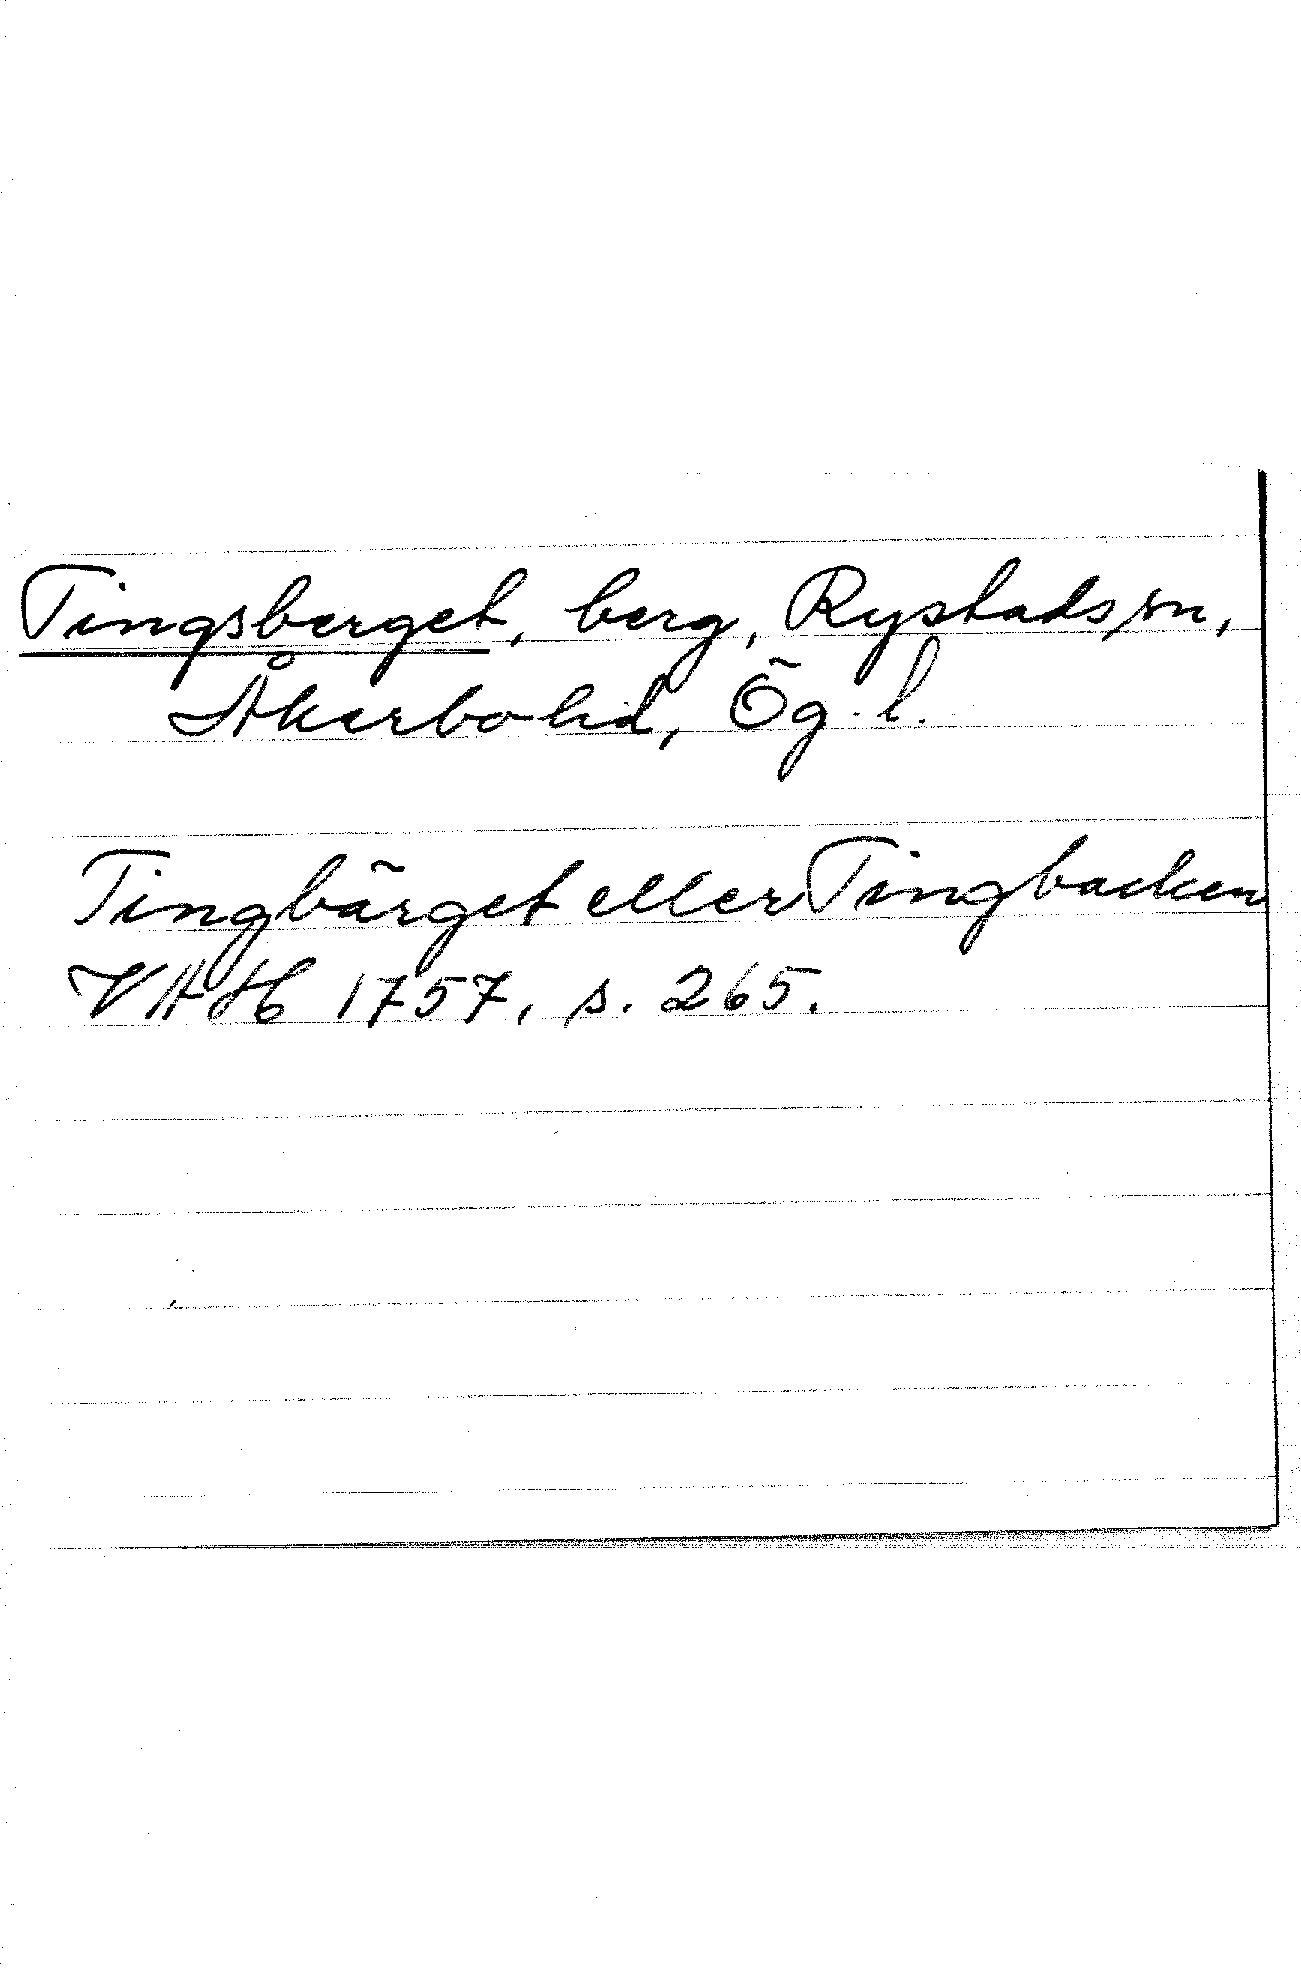 Tingsberget, berg, Rystads sn,
Åkerbo hd, Ög. l.
Tingbärget eller Tingbacken
VHAH 1757, s. 265.